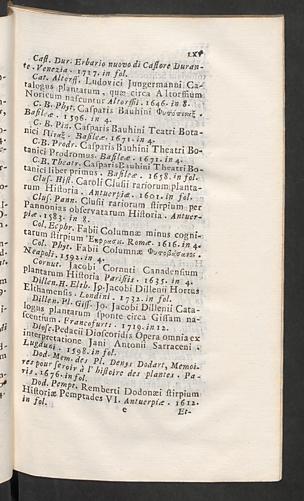 LXV
Cast. Dur. Erbario nuovo di Castore Duran-
te. Venezia. 1717. in fol.
Cat. Altorff. Ludovici Jungermanni Ca-
talogus plantarum, quæ circa Altorfium
Noricum nascuntur Altorfii. 1646. in 8.
C. B. Phyt. Casparis Bauhini Φυτοπιναξ.
Basileæ. 1596. in 4.
C. B. Pin. Casparis Bauhini Teatri Bota-
nici Πιναξ. Basileæ. 1671. in 4.
C. B. Prodr. Casparis Bauhini Theatri Bo-
tanici Prodromus. Basileæ. 1671. in 4.
C. B. Theatr. Casparis Bauhini Theatri Bo-
tanici liber primus. Basileæ. 1658. in fol.
Clus. Hist. Caroli Clusii rariorum planta-
rum Historia. Antuerpiæ. 1601. in fol.
Clus. Pann. Clusii rariorum stirpium per
Pannonias observatarum Historia. Antuer-
piæ. 1583. in 8.
Col. Ecphr. Fabii Columnæ minus cogni-
tarum stirpium Εκφρασις. Romæ. 1616. in 4.
Col. Phyt. Fabii Columnæ Φυτοβασανος.
Neapoli. 1592. in 4.
Cornut. Jacobi Cornuti Canadensium
plantarum Historia Parisiis. 1635. in 4.
Dillen. H. Elth. Jo. Jacobi Dillenii Hortus
Elthamensis. Londini. 1732. in fol.
Dillen. Pl. Giss. Jo. Jacobi Dillenii Cata-
logus plantarum sponte circa Gissam na-
scentium. Francofurti. 1719. in 12.
Diosc. Pedacii Dioscoridis Opera omnia ex
interpretatione Jani Antonii Sarraceni.
Lugduni. 1598. in fol.
Dod. Mem. des Pl. Denys Dodart, Memoi-
res pour servir à l'histoire des plantes. Pa-
ris. 1676. in fol.
Dod. Pempt. Remberti Dodonæi stirpium
Historiæ Pemptades VI. Antuerpiæ. 1612.
in fol.
e Et-